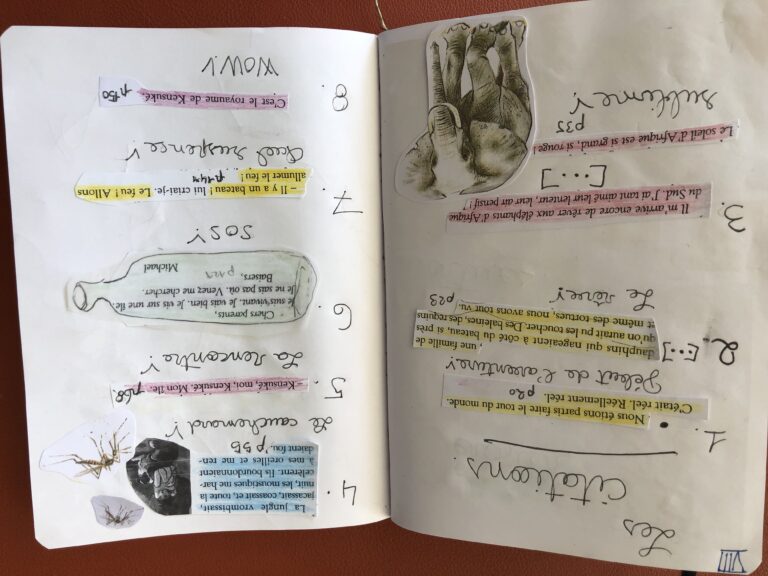 VIII
Les
Citations
1. Nous étions partis faire le tour du monde.
C'était réel. Réellement réel. p20
Début de l'aventure!
2. [...] , une famille de
dauphins qui nageaient à côté du bateau, si près
qu'on aurait pu les toucher. Des baleines, des requins
et même des tortues, nous avons tout vu.
Le rêve! p23
3. Il m'arrive encore de rêver aux éléphants d'Afrique
du Sud. J'ai tant aimé leur lenteur, leur air pensif!
[...]
Le soleil d'Afrique est si grand, si rouge!
p35
sublime!
4. La jungle vrombissait,
jacassait, coassait, et, toute la
nuit, les moustiques me har-
celèrent. Ils bourdonnaient
à mes oreilles et me ren-
daient fou.
Le cauchemar!
5. – Kensuké, moi, Kensuké. Mon île. p68!
La rencontre!
6. Chers parents,
Je suis vivant. Je vais bien. Je vis sur une île.
Je ne sais pas où. Venez me chercher.
Baisers,
Michael
SOS!
7. – Il y a un bateau! lui criai-je. Le feu! Allons
allumer le feu!
Quel suspence!
8. C'est le royaume de Kensuké. p150
WOW!